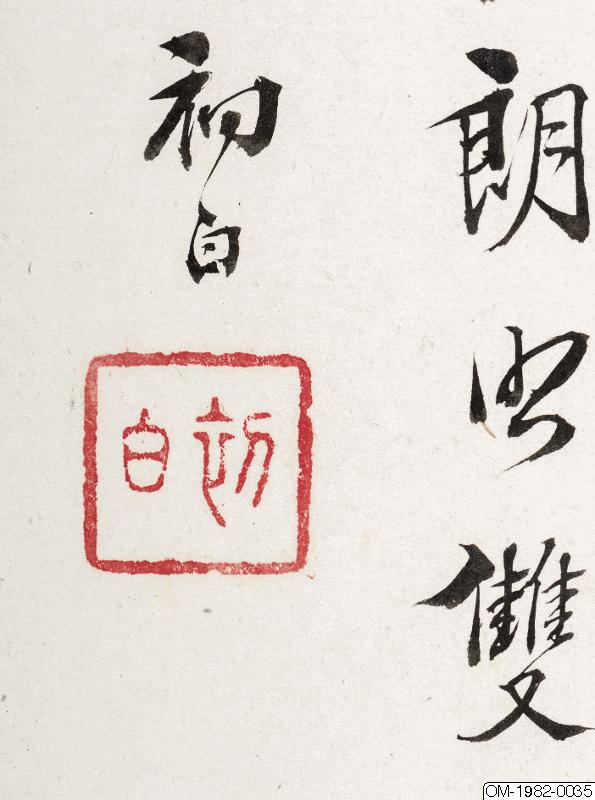 朗雙
初白
初白
OM-1982-0035